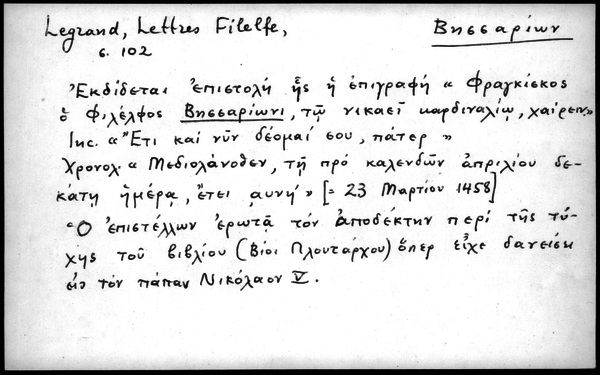 Legrand, Lettres Filelfe,
Βησσαρίων
σ. 102
Ἐκδίδεται ἐπιστολή ἧς ἡ ἐπιγραφή « Φραγκίσκος
ὁ Φιλέλφος Βησσαρίωνι, τῷ νικαεῖ καρδιναλίῳ, χαίρειν»
Inc. « Ἔτι καί νῦν δέομαί σου, πάτερ »
Χρονολ. « Μεδιολάνοθεν, τῇ πρό καλενδῶν ἀπριλίου δε-
κάτῃ ἡμέρᾳ, ἔτει ͵αυνη' » [= 23 Μαρτίου 1458]
Ὁ ἐπιστέλλων ἐρωτᾷ τόν ἀποδέκτην περί τῆς τύ-
χης τοῦ βιβλίου (Βίοι Πλουτάρχου) ὅπερ εἶχε δανείσει
εἰς τόν πάπαν Νικόλαον V.